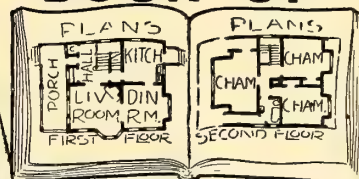 PLANS
PORCH
HALL
KITCH
LIV.
ROOM
DIN
RM.
FIRST FLOOR
PLANS
CHAM.
CHAM.
CHAM.
SECOND FLOOR